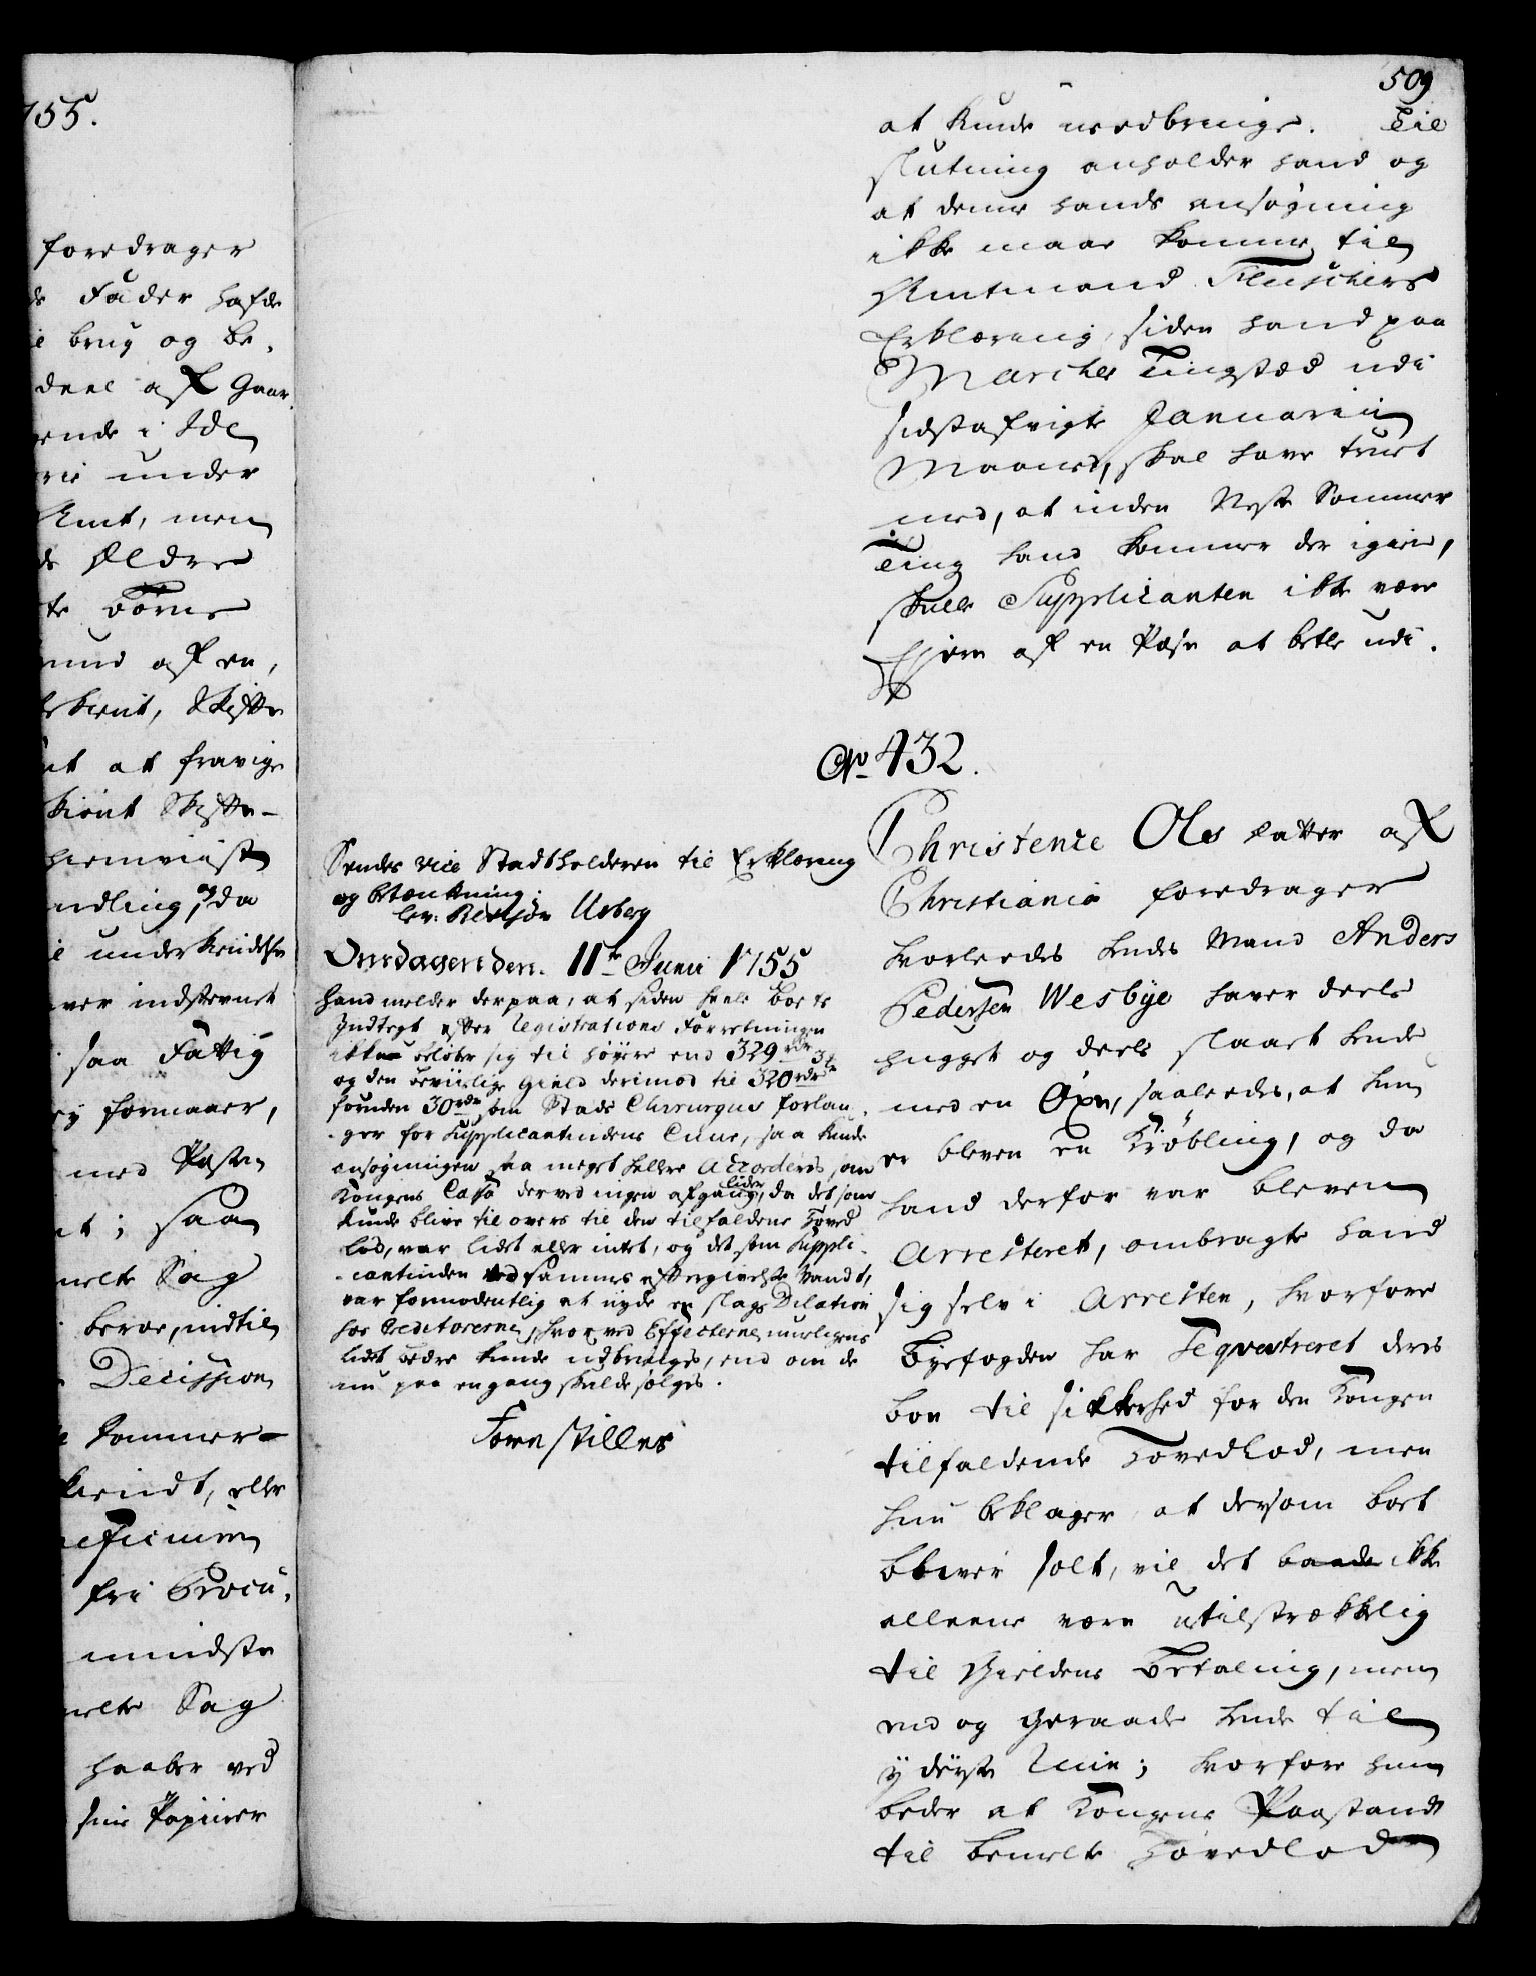 755.
foredrager
Fader hafde
brug og be-
deel af Gaar-
ende i Ide
under
Amt, men
Ældre
Børns
af en,
kient, Skifte
at fravige
kient Skifte-
hiemviist
ndling, og da
underkiendelse
ver indstevnet
saa Fattig
formaaer,
med Posten
t; saa
melte Sag
beroe, indtil
Decission
kommer
kiendt, eller
eficium
fri Procu-
mindste
melte Sag
haaber ved
sine Papiirer
509
at kunde medbringe. Til
slutning anholder hand og
at denne hands ansøgning
ikke maae komme til
Amtmand Fleischers
Erklæring, siden hand paa
Marcher Tingsted udi
sidstafvigte Januarii
Maaned, skal have truet
med, at inden Neste Sommer
Ting hand kommer der igien,
skulle Supplicanten ikke være
Ejere af en Pose at betle udi.
No 432.
Christence Ols datter af
Christiania foredrager
hvorledes hendes Mand Anders
Pedersen Wesbye haver deels
hugget og deels slaaet hende
med en Øxe, saaledes, at hun
er bleven en Krøbling, og da
hand derfor var bleven
Arresteret, ombragte hand
sig selv i Arresten, hvorfore
Byefogden har Seqvestreret deres
boe til sikkerhed for den Kongen
tilfaldende Hovedlod, men
hun beklager at dersom boet
bliver solt, vil det baade ikke
alleene være utilstrækkelig
til Gieldens Betaling, men
end og geraade hende til
yderste Ruin; hvorfore hun
beder at Kongens Paastand
til bemelte Hovedlod
Sendes Vice Stadtholderen til Erklæring
og betænkning.
Lev: Bertson Usberg
Onsdagen den 11te Junii 1755
Hand melder derpaa, at siden heele boets
Indtegt efter Registrations Forretningen
ikke beløber sig til høyere end 329 rdr
og den bevislige Gield derimod til 320 rdr
foruden 30 rdr som Stads Chirurgus forlan-
ger for Supplicantindens Cuur, saa kunde
ansøgningen saa meget hellere Accorderes, som
Kongens Cassa derved ingen afgang lider, da det som
kunde blive til overs til den tilfaldene Hoved
lod, var lidet eller intet, og det som Suppli-
cantinden ved sammes eftergivelse vandt,
var formodentlig at nyde en slags Dilation
hos Creditorerne, hvor ved Effecterne mueligens
lidet bedre kunde udbringes, end om de
nu paa en gang skulde sælges.
Forestilles